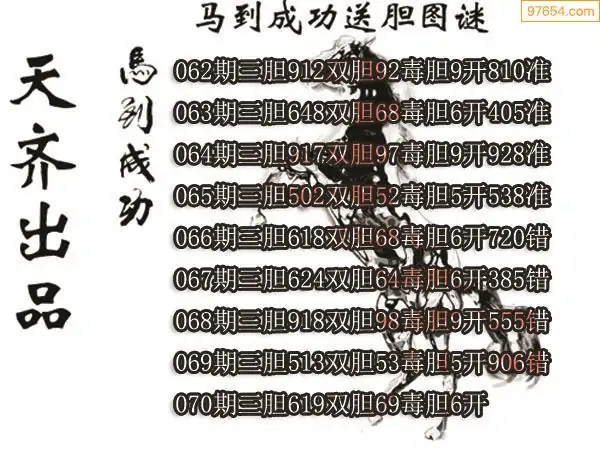 97654.com
马到成功送胆图谜
天齐出品
馬到成功
062期三胆912双胆92毒胆9开810准
063期三胆648双胆68毒胆6开405准
064期三胆917双胆97毒胆9开928准
065期三胆502双胆52毒胆5开538准
066期三胆618双胆68毒胆6开720错
067期三胆624双胆64毒胆6开385错
068期三胆918双胆98毒胆9开555错
069期三胆513双胆53毒胆5开906错
070期三胆619双胆69毒胆6开